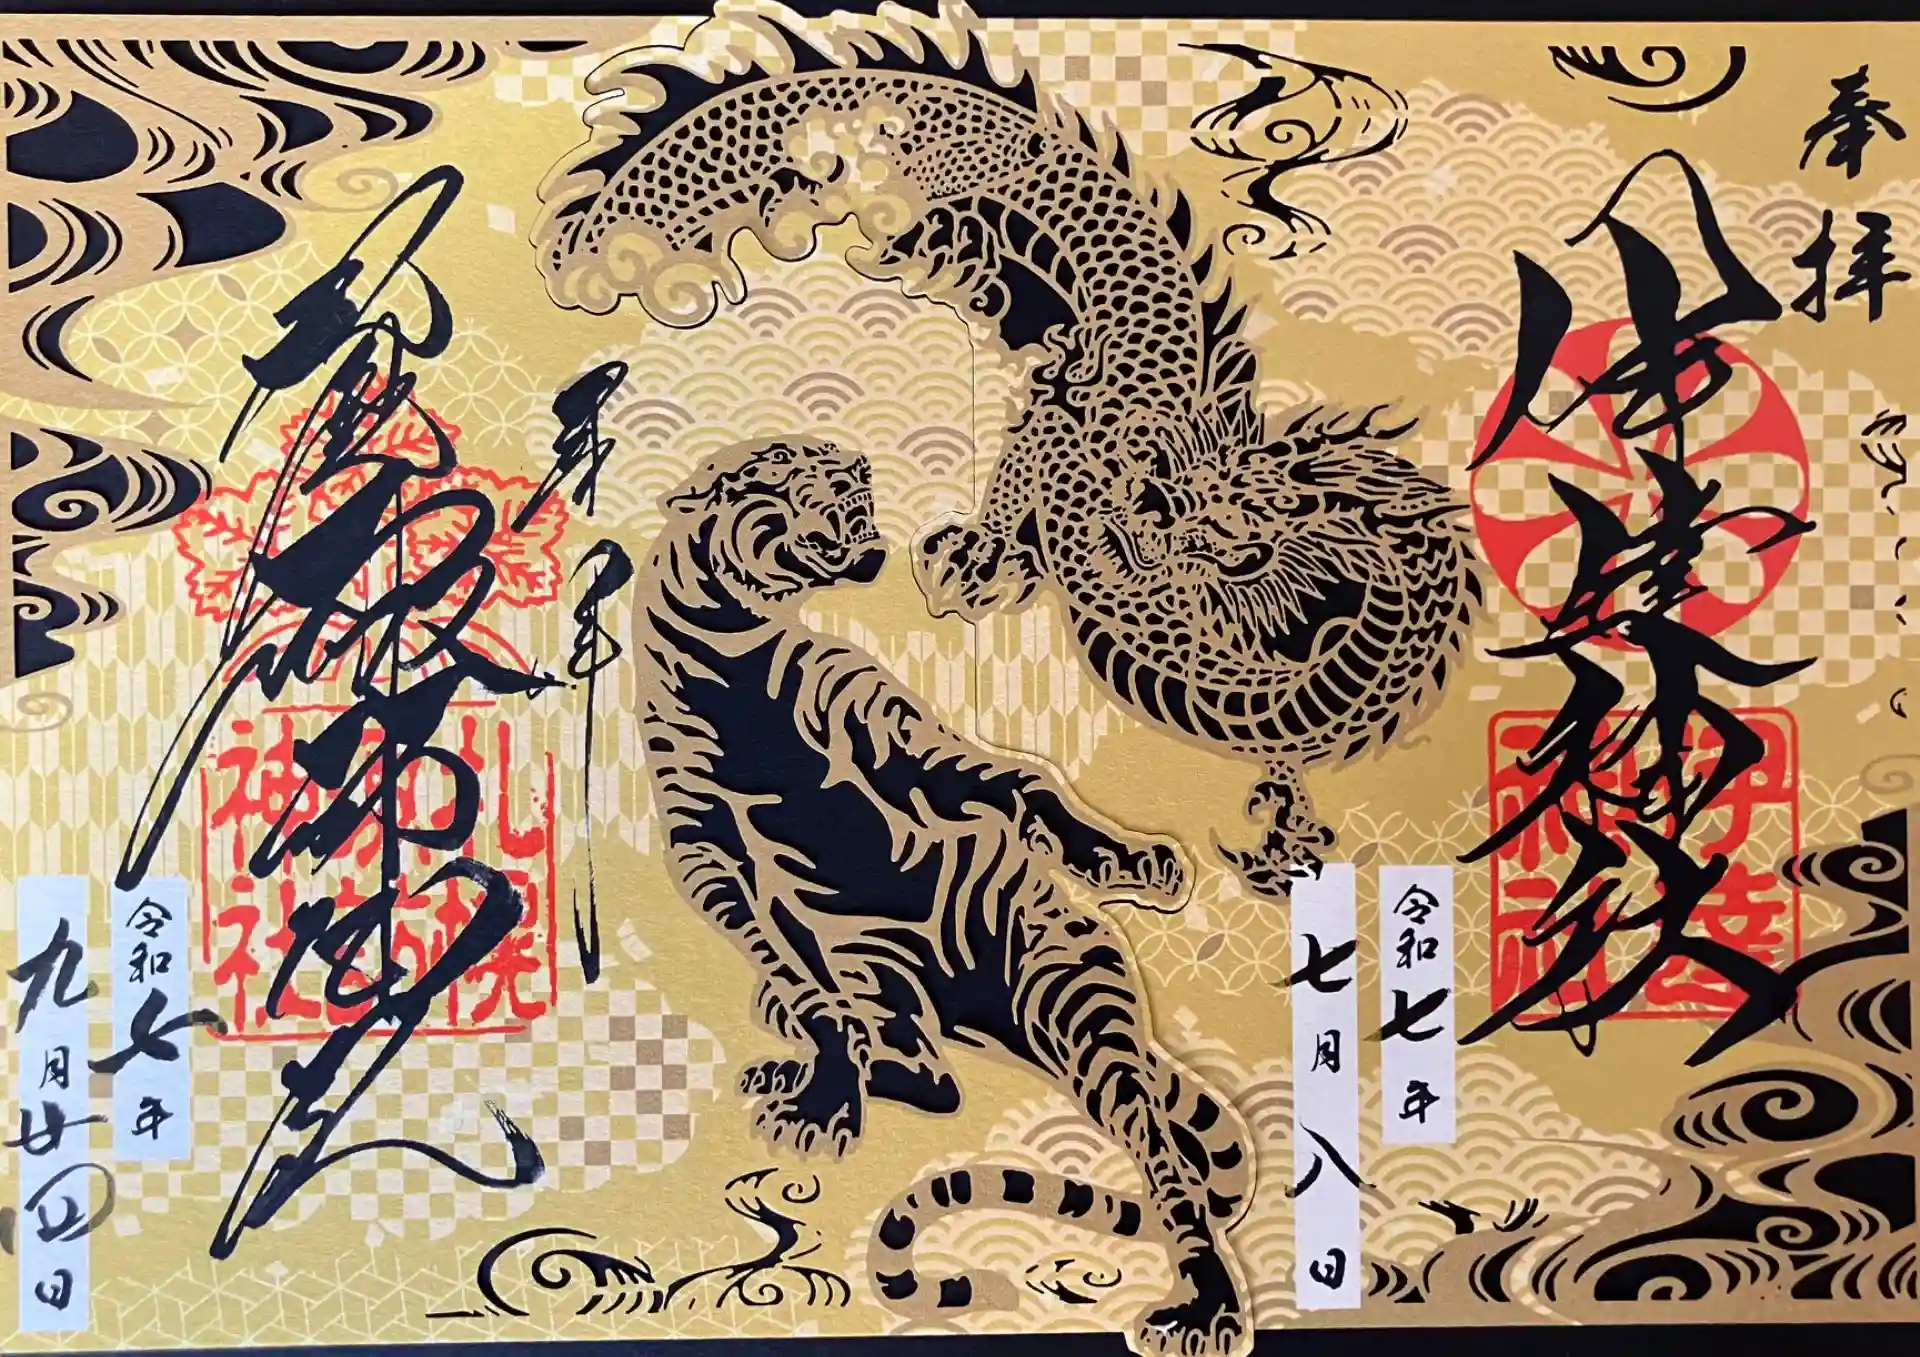 奉拝
伊達神社
伊達
神社
令和七年
七月八日
奉拝
札幌
諏訪
神社
令和七年
九月廿四日